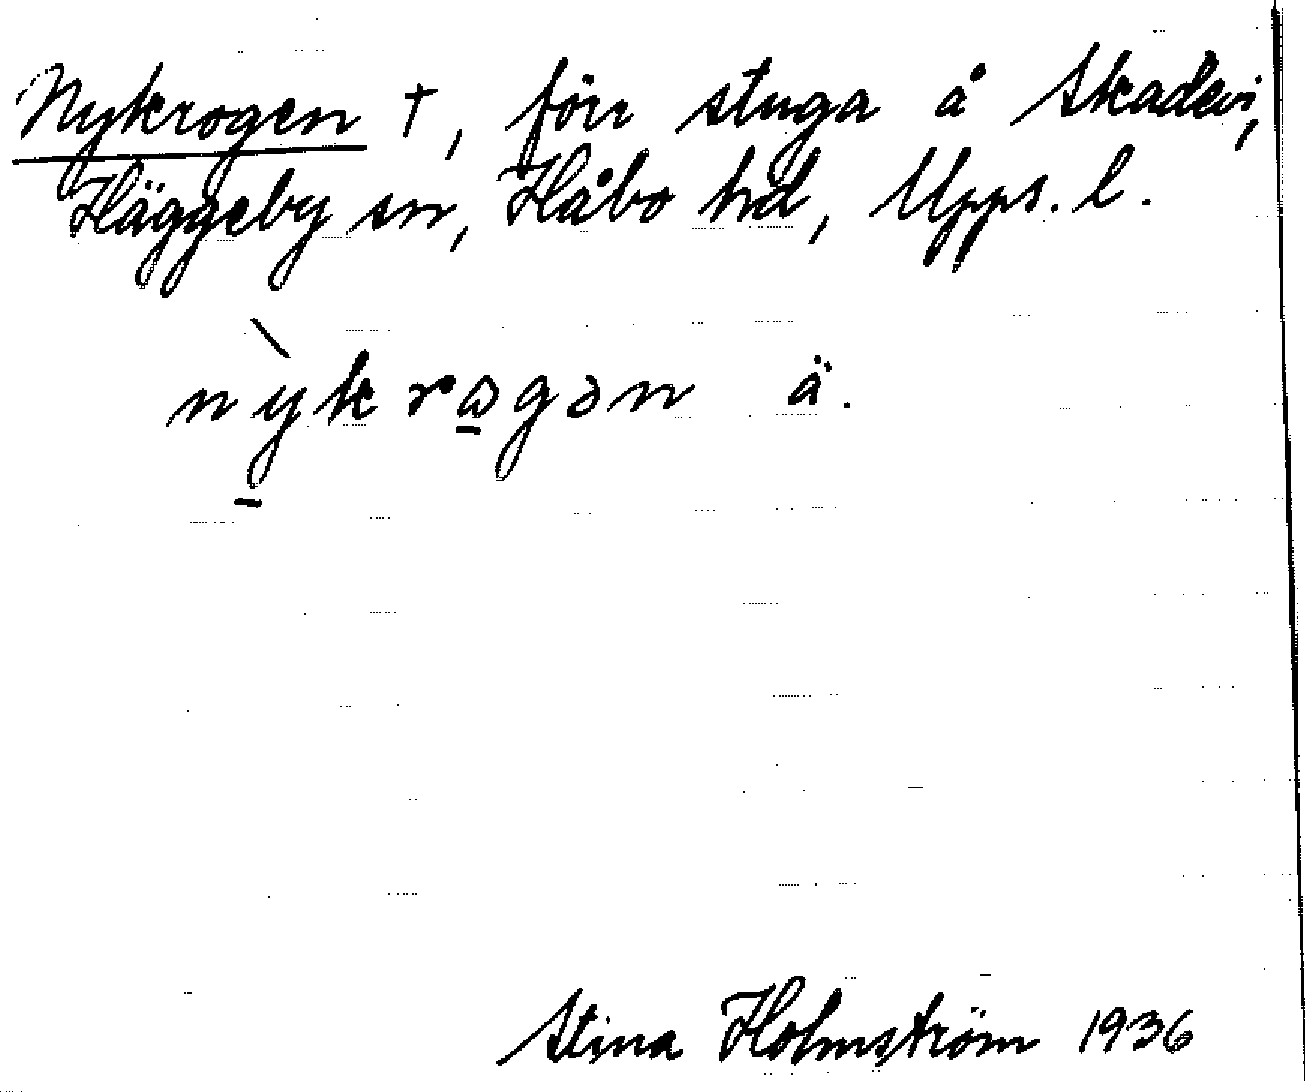 Nykrogen †, förr stuga å Skadevi,
Häggeby sn, Håbo hd, Upps. l.
nỳ̠krɷ̠gən ä.
Stina Holmström 1936